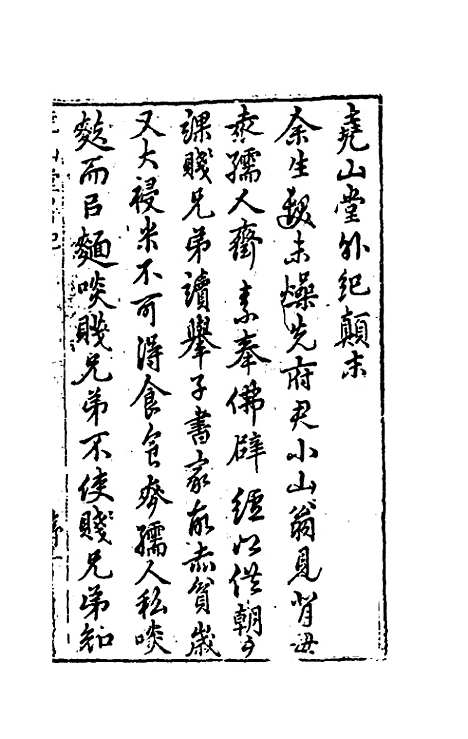 堯山堂外紀顛末
余生髮未燥先府君小山翁見背母
袁孺人齋素奉佛辟纑以供朝夕
課賤兄弟讀舉子書家故赤貧歲
又大祲米不可得食食麥孺人私啖
麩而召麵啖賤兄弟不使賤兄弟知